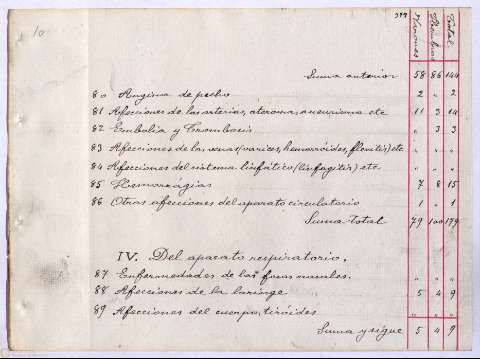 10
377 Varones Hembras Total
Suma anterior 58 86 144
80 Angina de pecho 2 " 2
81 Afecciones de las arterias, ateroma, aneurisma etc 11 3 14
82 Embolia y Trombosis " 3 3
83 Afecciones de las venas (varices, hemorróides, flevitis) etc " " "
84 Afecciones del sistema linfático (linfagitis) etc " " "
85 Hemorragias 7 8 15
86 Otras afecciones del aparato circulatorio 1 " 1
Suma Total 79 100 179
IV. Del aparato respiratorio.
87 Enfermedades de las fosas nasales. " " "
88 Afecciones de la laringe 5 4 9
89 Afecciones del cuerpo, tiróides " " "
Suma y sigue 5 4 9